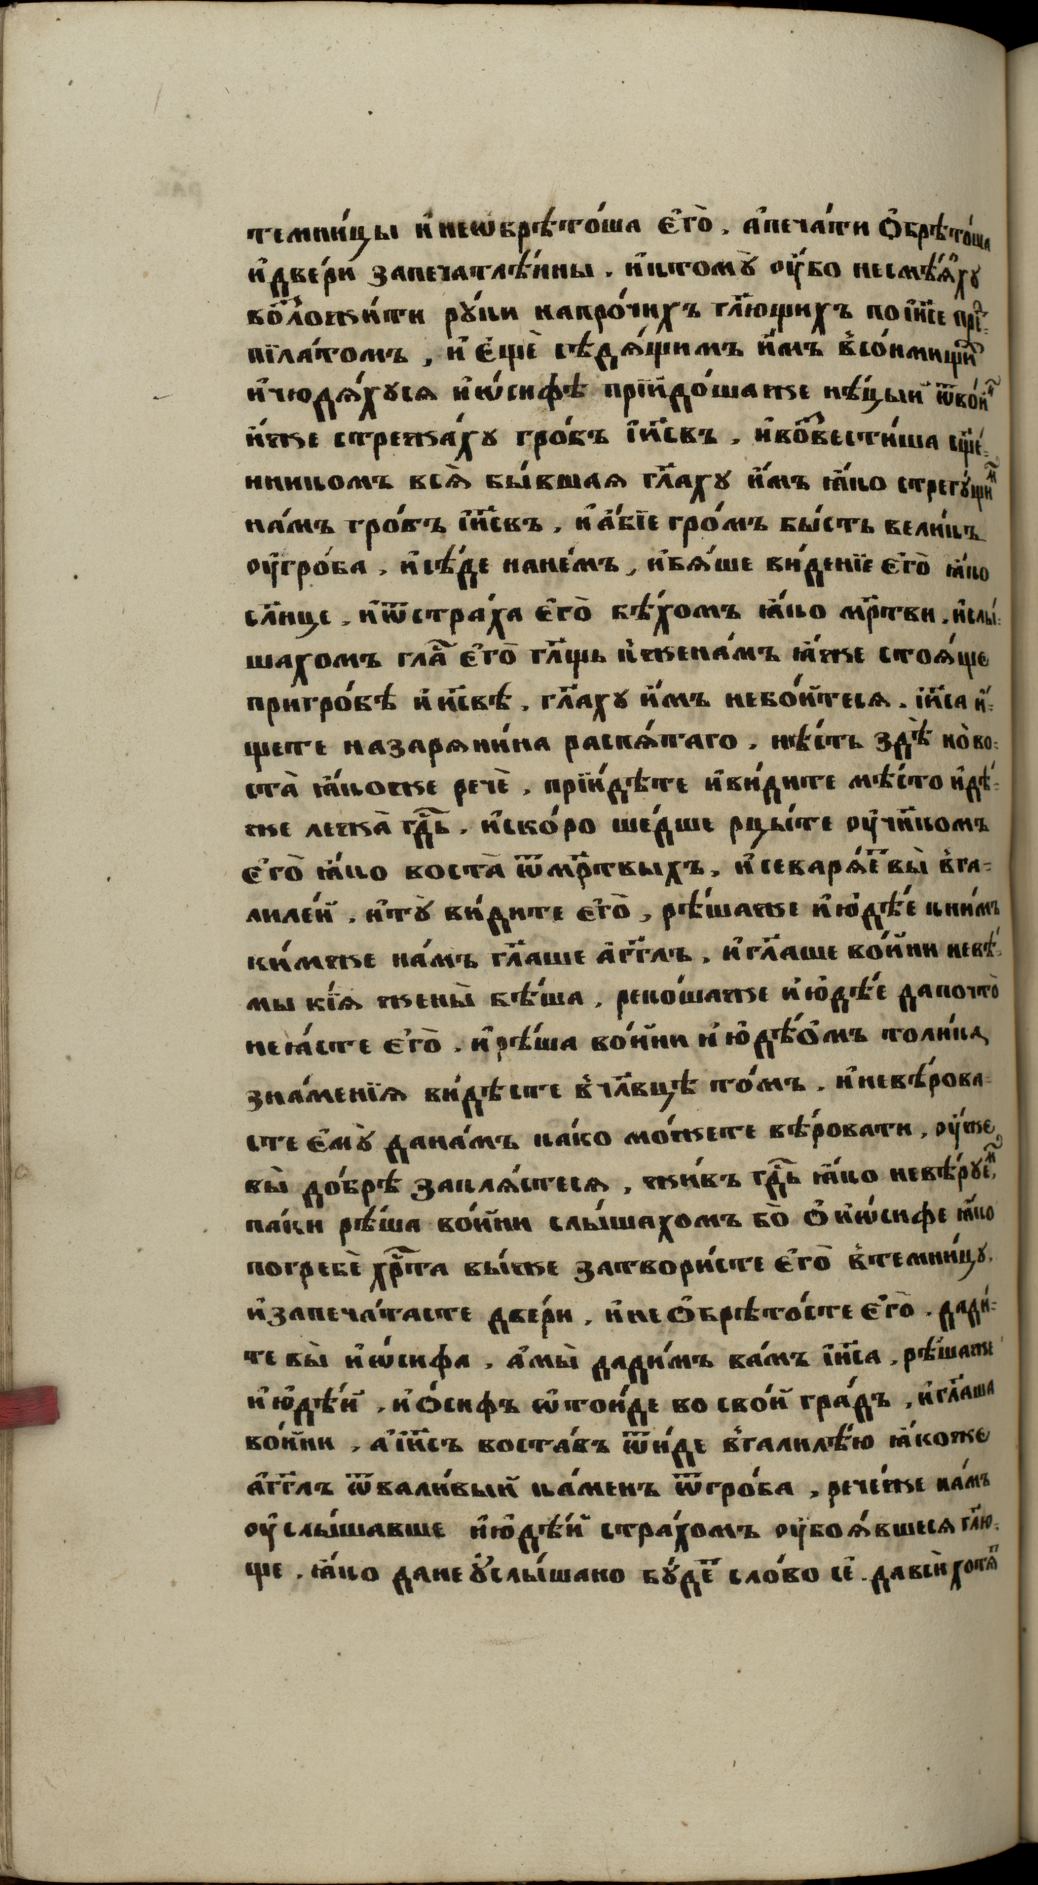 темни́цы и҆ неѡбрѣто́ша є҆го̀. а҆печа́ти ѻ҆брѣто́ша
и҆две́ри запечатлѣ́нны. и҆ктомꙋ̀ ᲂу҆́бо несмѣ́ѧхꙋ
воⷥложи́ти рꙋ́ки напро́чихъ гл҃ющихъ по і҆и҃се преⷣ-
пїла́томъ, и҆ є҆щѐ сѣдѧ́щимъ и҆̀мъ в̾со́нмищиⷯ
и҆чюдѧ́хꙋсѧ и҆ѡ́сифѣ прїидо́шаже нѣ́цыи ѿво́инъ
и҆́же стрежа́хꙋ гро́бъ і҆и҃свъ. и҆воⷥвести́ша сщ҃е-
нникомъ всѧ̀ бы́вшаѧ гл҃ахꙋ и҆̀мъ ꙗ҆́ко стрегꙋ́щиⷨ
на́мъ гро́бъ і҆и҃свъ. и҆а҆́бїе гро́мъ бы́сть вели́къ
ᲂу҆гро́ба. и҆сѣ́де нане́мъ, и҆бѧ́ше ви́денїе є҆го̀ ꙗ҆́ко
сл҃нце. и҆ѿстра́ха є҆го̀ бѣ́хомъ ꙗ҆́ко мр҃тви. и҆слы́-
шахомъ глаⷭ҇ є҆го̀ гл҃щь к̾жена́мъ ꙗ҆́же стоѧ́ще
пригро́бѣ і҆и҃свѣ. гл҃ахꙋ и҆̀мъ небо́итесѧ. і҆и҃са и҆́-
щете назарѧни́на распѧ́таго. нѣ́сть здѣ̀ но во-
ста̀ ꙗ҆́коже речѐ. прїиди́те и҆ви́дите мѣ́сто и҆дѣ́-
же лежа̀ гдⷭ҇ь. и҆ско́ро ше́дше рцы́те ᲂу҆чн҃комъ
є҆го̀ ꙗ҆́ко воста̀ ѿмр҃твыхъ. и҆ севарѧ́еⷮ вы̀ в̾га-
лиле́и. и҆тꙋ̀ ви́дите є҆го̀, рѣ́шаже и҆ю҆дѣ́е кни́мъ
ки́мже на́мъ гл҃аше а҆́гг҃лъ. и҆гл҃аше во́ини невѣ́-
мы кі́ѧ жены̀ бѣ́ша, реко́шаже и҆ю҆дѣ́е дапочто̀
неꙗ҆́сте є҆го̀. и҆ рѣ́ша во́ини и҆ю҆дѣ́ѻмъ толи́ка
зна́менїѧ ви́дѣсте в̾чл҃вцѣ то́мъ. и҆невѣ́рова-
сте є҆мꙋ̀ дана́мъ ка́ко мо́жете вѣ́ровати, ᲂу҆́же
вы̀ до́брѣ заклѧ́стесѧ, жи́въ гдⷭ҇ь ꙗ҆́ко невѣ́рꙋеⷨ,
па́ки рѣ́ша во́ини слы́шахомъ бо̀ ѻ҆ и҆ѡ́сифе ꙗ҆́ко
погребѐ хрⷭ҇та вы́же затвори́сте є҆го̀ в̾темни́цꙋ,
и҆запеча́тасте две́ри, и҆не ѻ҆брѣто́сте є҆го̀. дади́-
те вы̀ и҆ѡ́сифа. а҆мы̀ дади́мъ ва́мъ і҆и҃са, рѣ́шаже
и҆ю҆дѣ́и, и҆ѻ́сифъ ѡ҆тои́де во сво́й гра́дъ, и҆гл҃аша
во́ини, а҆і҆и҃съ воста́въ ѿи́де в̾галилѣ́ю ꙗ҆́коже
а҆́гг҃лъ ѿвали́выи ка́мень ѿгро́ба, рече́же на́мъ
ᲂу҆слы́шавше и҆ю҆дѣ́и стра́хомъ ᲂу҆боѧ́вшесѧ гл҃ю-
ще. ꙗ҆́ко дане ᲂу҆слы́шано бꙋ́деⷮ сло́во сѐ. давсѝ хотѧ̀